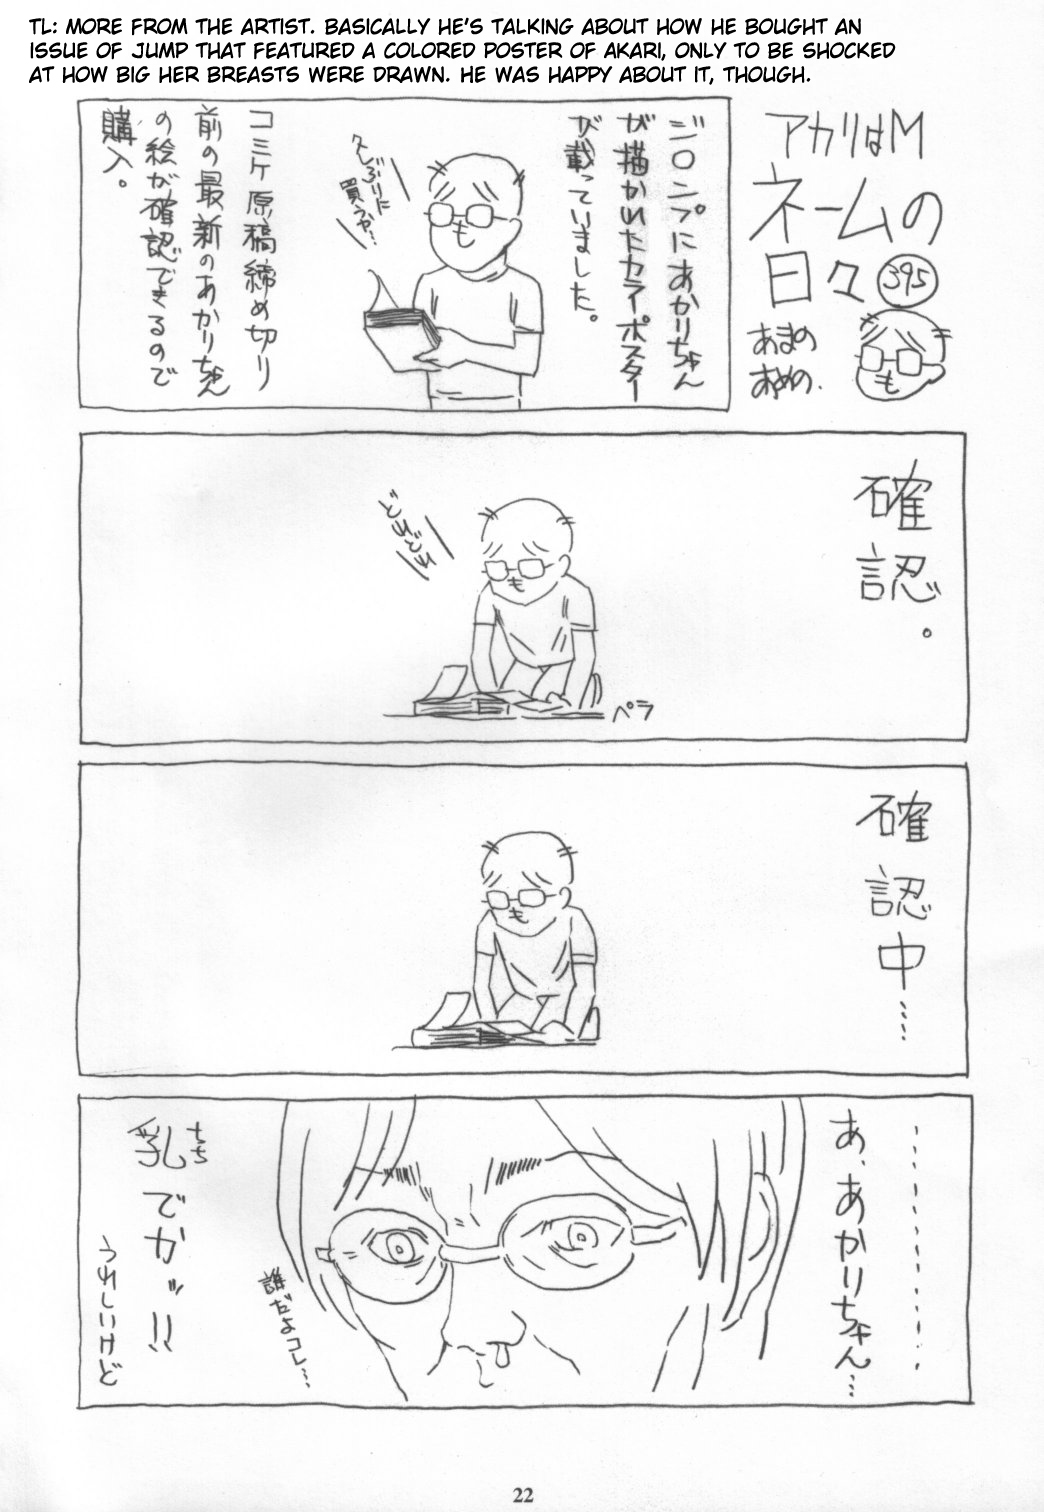 TL: MORE FROM THE ARTIST. BASICALLY HE'S TALKING ABOUT HOW HE BOUGHT AN
ISSUE OF JUMP THAT FEATURED A COLORED POSTER OF AKARI, ONLY TO BE SHOCKED
AT HOW BIG HER BREASTS WERE DRAWN. HE WAS HAPPY ABOUT IT, THOUGH.
アカリはM
ネームの
日々 395
あまの
あめの.
ジ○ンプにあかりちゃん
が描かれたカラーポスター
が載っていました。
久しぶりに
買うか…
コミケ原稿締め切り
前の最新のあかりちゃん
の絵が確認できるので
購入。
確認。
どれどれ
ペラ
確認中……
…………
あ、あかりちゃん…
誰だよコレ…
乳でかッ!!
ちち
うれしいけど
22